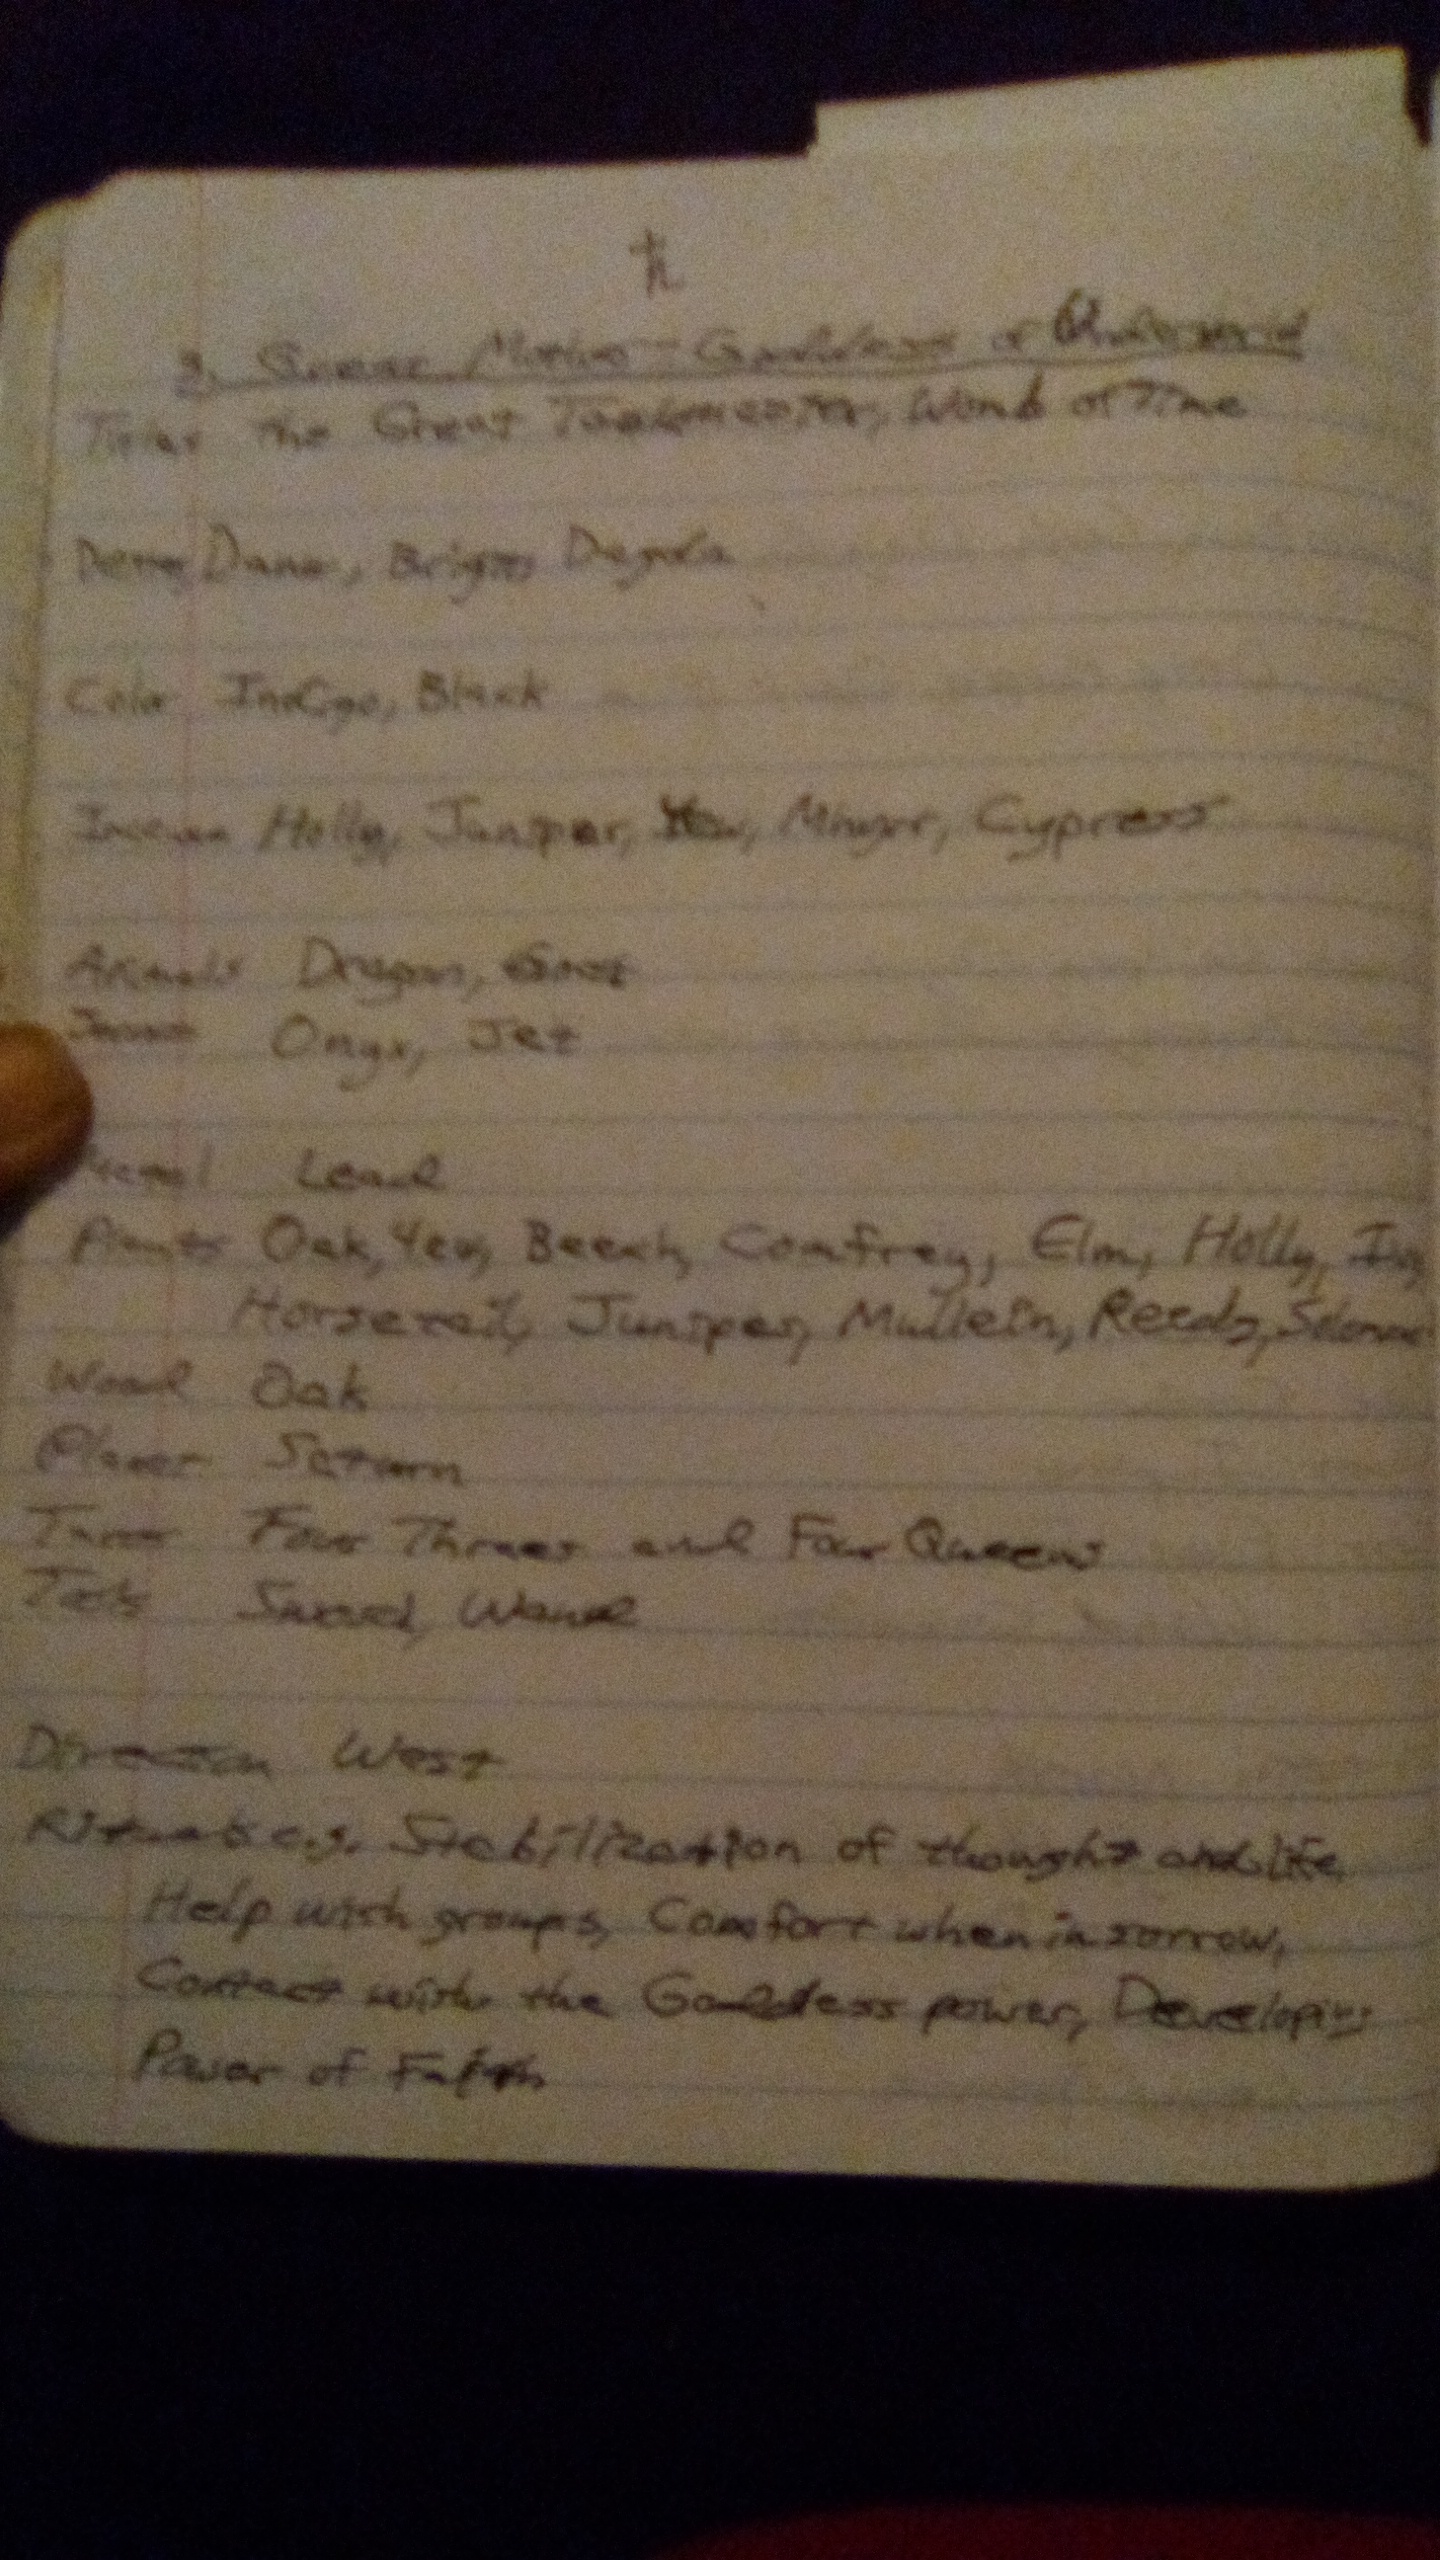 ♄
3. Great Mother - Goddess of Underworld
Titles the Great Taskmaster, Womb of Time
Danu, Brigit, Dagda
Color Indigo, Black
Incense Holly, Juniper, Yew, Cypress
Animals Dragon, Goat
Onyx, Jet
Metal Lead
Plants Oak, Yew, Beech, Comfrey, Elm, Holly, Ivy
Horsetail, Juniper, Mullein, Reeds,
Wood Oak
Planet Saturn
Tarot Four Threes and Four Queens
Tools Sword, Wand
Direction West
Rituals e.g. Stabilization of thought and life
Help with groups, Comfort when in sorrow,
Contact with the Goddess power, Developing
Power of Faith